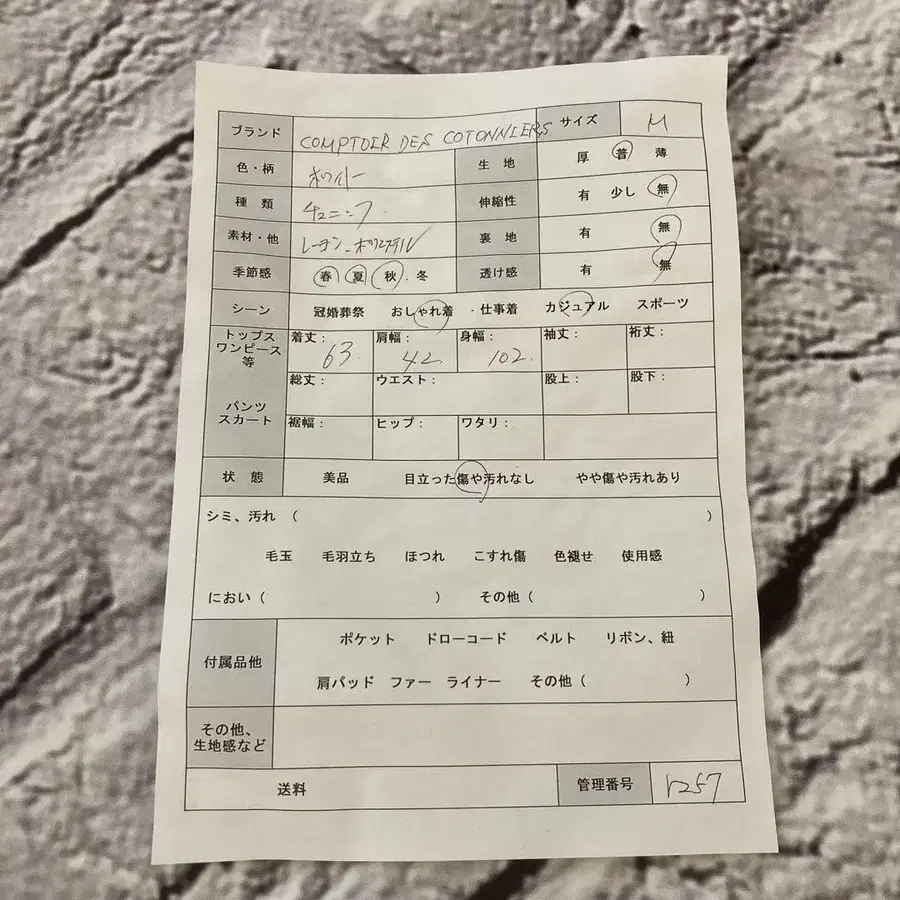 ブランド COMPTOIR DES COTONNIERS サイズ M
色・柄 ホワイト 生地 厚 普 薄
種類 チュニック 伸縮性 有 少し 無
素材・他 レーヨン、ポリエステル 裏地 有 無
季節感 春 夏 秋・冬 透け感 有 無
シーン 冠婚葬祭 おしゃれ着 ・仕事着 カジュアル スポーツ
トップス ワンピース等 着丈: 63 肩幅: 42 身幅: 102 袖丈: 裄丈:
パンツ スカート 総丈: ウエスト: 股上: 股下:
裾幅: ヒップ: ワタリ:
状態 美品 目立った傷や汚れなし やや傷や汚れあり
シミ、汚れ ( )
毛玉 毛羽立ち ほつれ こすれ傷 色褪せ 使用感
におい ( ) その他 ( )
付属品他 ポケット ドローコード ベルト リボン、紐
肩パッド ファー ライナー その他 ( )
その他、
生地感など
送料 管理番号 r257